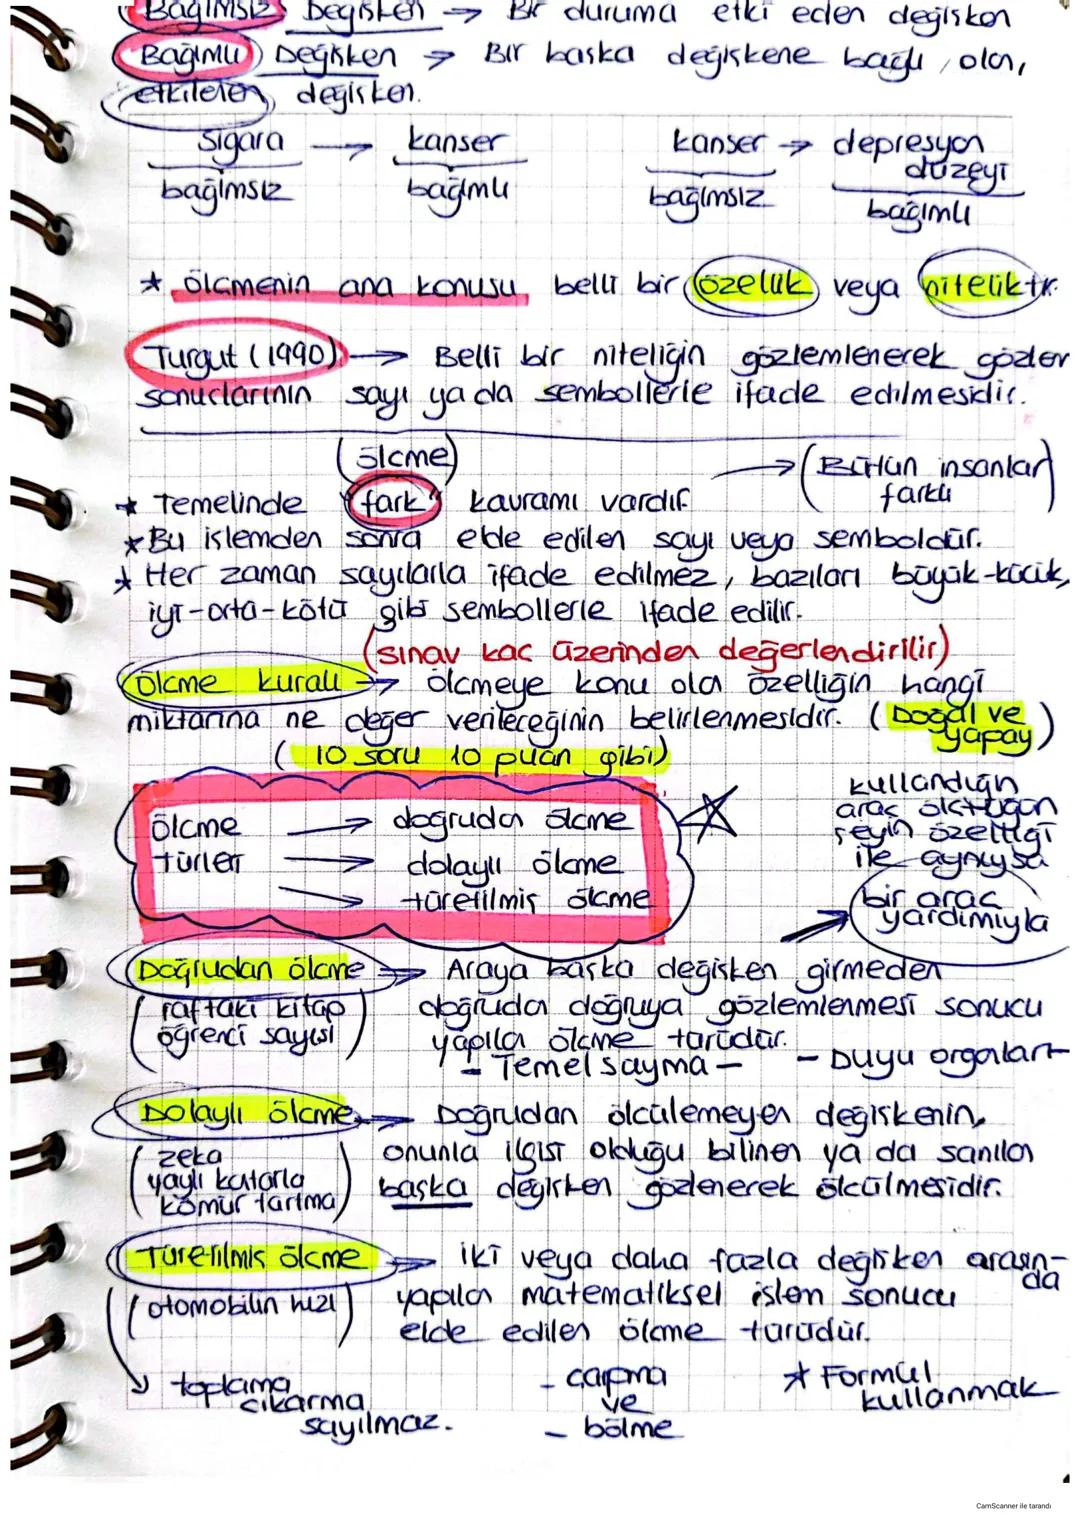 Bağımsız Değişken → Bir duruma etki eden değişken
Bağımlı Değişken → Bir başka değişkene bağlı, olan,
etkilelen değişken.
Sigara → kanser
bağımsız bağımlı
kanser → depresyon düzeyi
bağımsız bağımlı
* ölçmenin ana konusu belli bir özellik veya niteliktir.
Turgut (1990) → Belli bir niteliğin gözlemlenerek gözlem
sonuçlarının sayı ya da sembollerle ifade edilmesidir.
(ölçme)
* Temelinde "fark" kavramı vardır. → (Bütün insanlar farklı)
* Bu işlemden sonra elde edilen sayı veya semboldür.
* Her zaman sayılarla ifade edilmez, bazıları büyük-küçük,
iyi-orta-kötü gibi sembollerle ifade edilir.
(sınav kaç üzerinden değerlendirilir)
Ölçme kuralı → ölçmeye konu olan özelliğin hangi
miktarına ne değer verileceğinin belirlenmesidir. (Doğal ve yapay)
(10 soru 10 puan gibi)
ölçme türleri
→ doğrudan ölçme
→ dolaylı ölçme
→ türetilmiş ölçme
kullandığın
araç ölçtüğün
şeyin özelliği
ile aynıysa
bir araç
yardımıyla
Doğrudan ölçme → Araya başka değişken girmeden
(raftaki kitap doğrudan doğruya gözlemlenmesi sonucu
öğrenci sayısı) yapılan ölçme türüdür.
- Temel sayma - - Duyu organları -
Dolaylı ölçme → Doğrudan ölçülemeyen değişkenin,
(zeka onunla ilgisi olduğu bilinen ya da sanılan
yaylı kantarla başka değişken gözlenerek ölçülmesidir.
kömür tartma)
Türetilmiş ölçme → iki veya daha fazla değişken arasında
(otomobilin hızı) yapılan matematiksel işlem sonucu
elde edilen ölçme türüdür.
→ toplama
çıkarma
sayılmaz.
- çarpma
ve
- bölme
* Formül
kullanmak
CamScanner ile tarandı